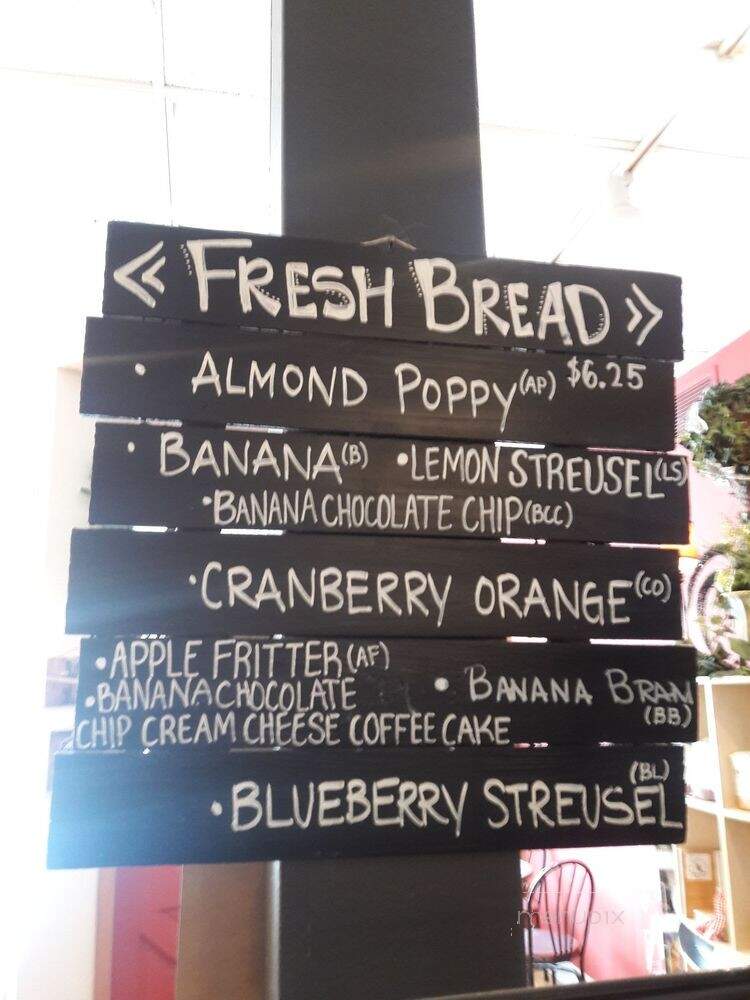 << FRESH BREAD >>
• ALMOND POPPY (AP) $6.25
• BANANA (B) • LEMON STREUSEL (LS)
• BANANA CHOCOLATE CHIP (BCC)
• CRANBERRY ORANGE (CO)
• APPLE FRITTER (AF)
• BANANA CHOCOLATE
CHIP CREAM CHEESE COFFEE CAKE
• BANANA BRAN
(BB)
(BL)
• BLUEBERRY STREUSEL
menupix